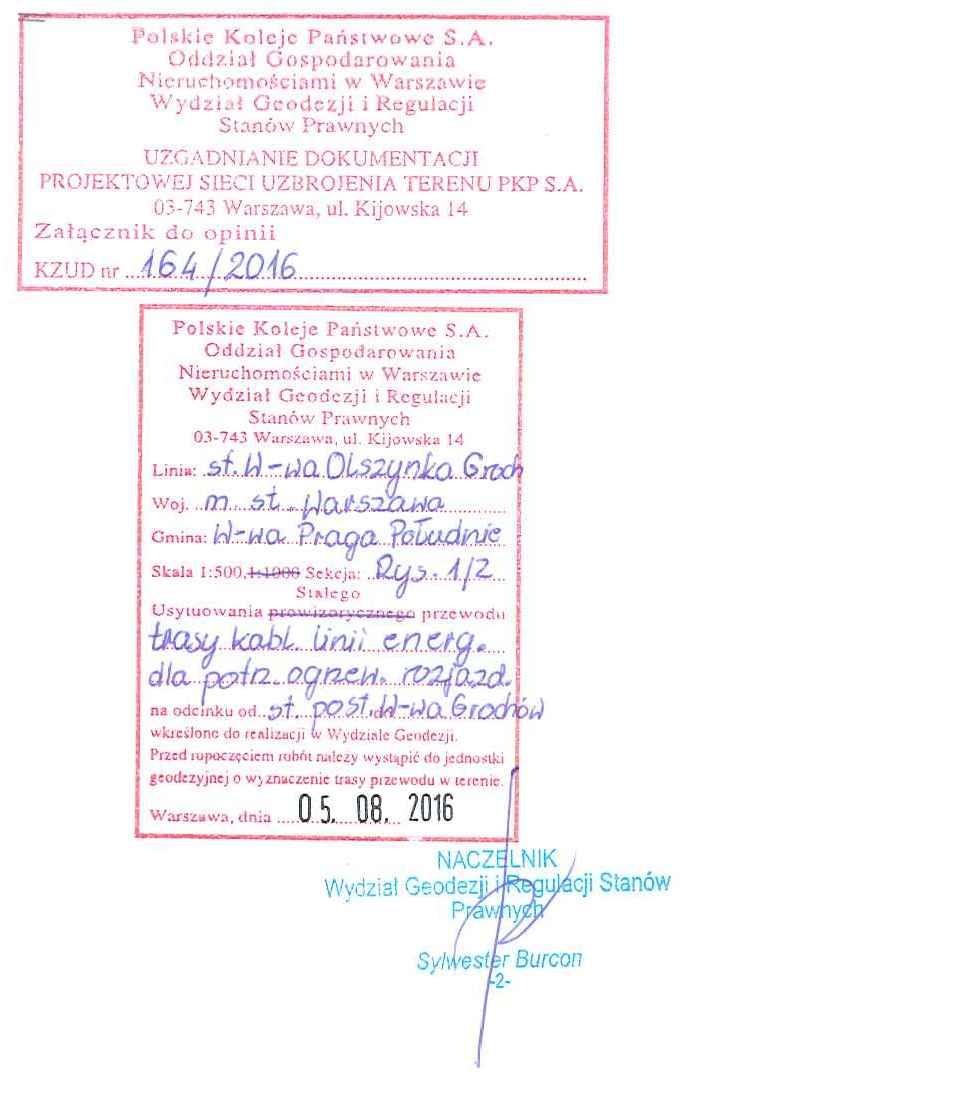 Polskie Koleje Państwowe S.A.
Oddział Gospodarowania
Nieruchomościami w Warszawie
Wydział Geodezji i Regulacji
Stanów Prawnych
UZGADNIANIE DOKUMENTACJI
PROJEKTOWEJ SIECI UZBROJENIA TERENU PKP S.A.
03-743 Warszawa, ul. Kijowska 14
Załącznik do opinii
KZUD nr 164/2016
Polskie Koleje Państwowe S.A.
Oddział Gospodarowania
Nieruchomościami w Warszawie
Wydział Geodezji i Regulacji
Stanów Prawnych
03-743 Warszawa, ul. Kijowska 14
Linia: st. W-wa Olszynka Groch
Woj. m st. Warszawa
Gmina: W-wa Praga Południe
Skala 1:500, 1:1000 Sekcja: Rys. 1/2
Stałego
Usytuowania prowizorycznego przewodu
trasy kabl. linii energ.
dla potrz. ogrzew. rozjazd.
na odcinku od st. post. W-wa Grochów
wkreślono do realizacji w Wydziale Geodezji.
Przed rozpoczęciem robót należy wystąpić do jednostki
geodezyjnej o wyznaczenie trasy przewodu w terenie.
Warszawa, dnia 05. 08. 2016
NACZELNIK
Wydział Geodezji i Regulacji Stanów
Prawnych
Sylwester Burcon
-2-